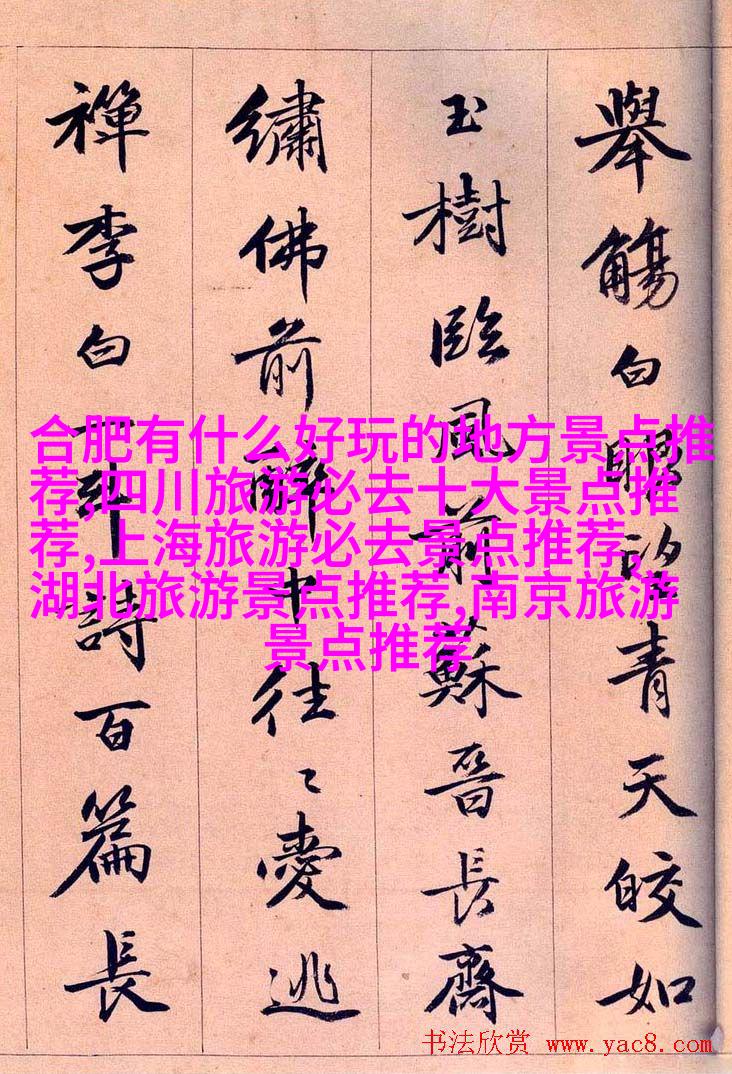 舉觴白眼望青天皎如
玉樹臨風前蘇晉長齋
繡佛前醉中往〻愛逃
禪李白一斗詩百篇長
合肥有什么好玩的地方景点推
荐,四川旅游必去十大景点推
荐,上海旅游必去景点推荐,
湖北旅游景点推荐,南京旅游
景点推荐
书法欣赏 www.yac8.com